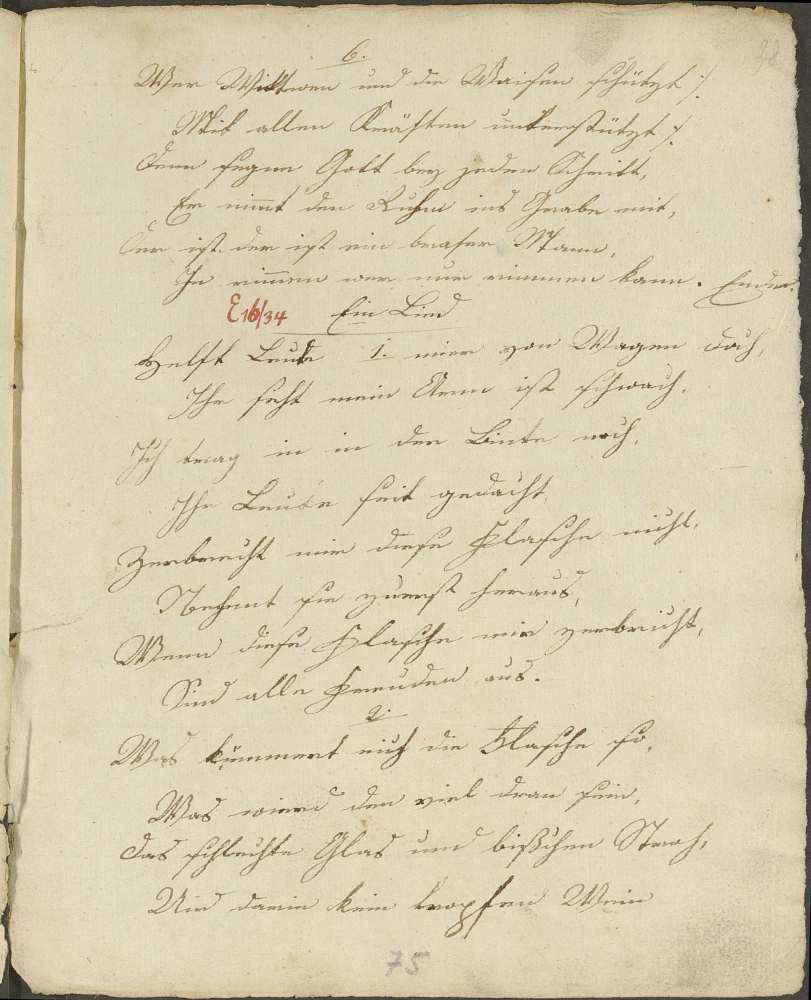 38
6.
Wer Wittwen und die Waisen schützt :/:
Mit allen Kräften unterstützt :/:
Denn segne Gott bey jeden Schritt,
Er nimt den Ruhm ins Grabe mit,
Der ist der ist ein brafer Mann,
In rimmen wer nur rimmen kann. Ende.
E16/34 Ein Lied
Helft Leute 1. mier von Wagen doch,
Ihr seht mein Arm ist schwach.
Ich trag in in der Binte noch,
Ihr Leute seit gedacht
Zerbrecht mir diese Flasche nicht,
Nehmt sie zuerst heraus,
Wenn diese Flasche mir zerbricht,
Sind alle Freuden aus.
2.
Was kümmert euch die Flasche so,
Was wierd den viel dran sein,
das schlechte Glas und bißchen Stroh,
Und darin kein tropfen Wein
75